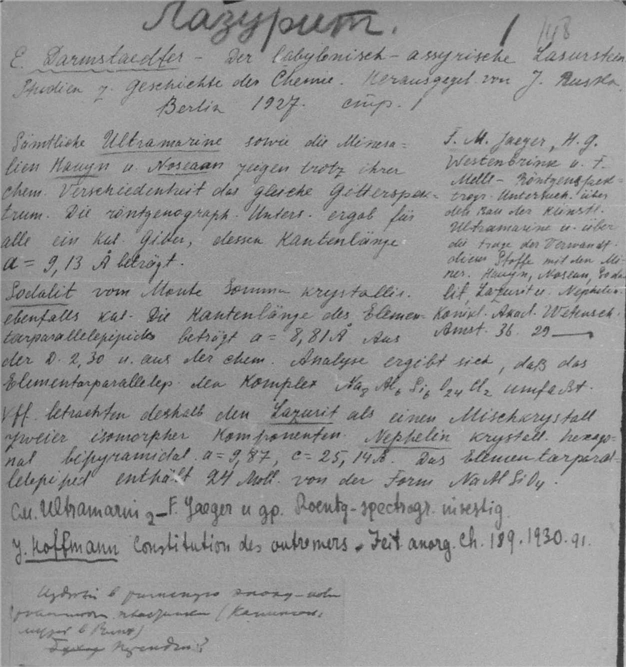 Лазурит.
1
E. Darmstaedter – Der babylonisch-assyrische Lasurstein
Studien z. Geschichte des Chemie. Herausgegeb. von J. Ruska.
Berlin 1927. стр. 1
Sämtliche Ultramarine sowie die Minera-
lien Hauyn u. Nosean zeigen trotz ihrer
chem. Verschiedenheit das gleiche Gitterspek-
trum. Die röntgenograph. Unters. ergab für
alle ein kub. Gitter, dessen Kantenlänge
a = 9,13 Å beträgt.
Sodalit vom Monte Somma krystallis.
ebenfalls kub. Die Kantenlänge des Elemen-
tarparallelepipeds beträgt a = 8,81 Å Aus
der D. 2,30 u. aus der chem. Analyse ergibt sich, daß das
Elementarparallelep. den Komplex Na8 Al6 Si6 O24 Cl2 umfaßt.
Vff. betrachten deshalb den Lazurit als einen Mischkrystall
zweier isomorpher Komponenten. Nephelin krystall. hexago-
nal bipyramidal. a = 9,87, c = 25,14 Å. Das Elementarparal-
lelepiped enthält 24 Moll. von der Form NaAlSiO4.
F. M. Jaeger, H. G.
Westenbrink u. F.
Melle – Röntgenspek-
trogr. Untersuch. über
den Bau der künstl.
Ultramarine u. über
die Frage der Verwandt-
dieser Stoffe mit den Mi-
ner. Hauyn, Nosean, Soda-
lit, Lazurit u. Nephelin
Koninkl. Akad. Wetensch.
Amst. 36. 29 —
См. Ultramarin – F. Jaeger и др. Roentg-spectrogr. investig.
J. Hoffmann Constitution des outremers. Zeit anorg. Ch. 189. 1930. 91.
в римскую эпоху